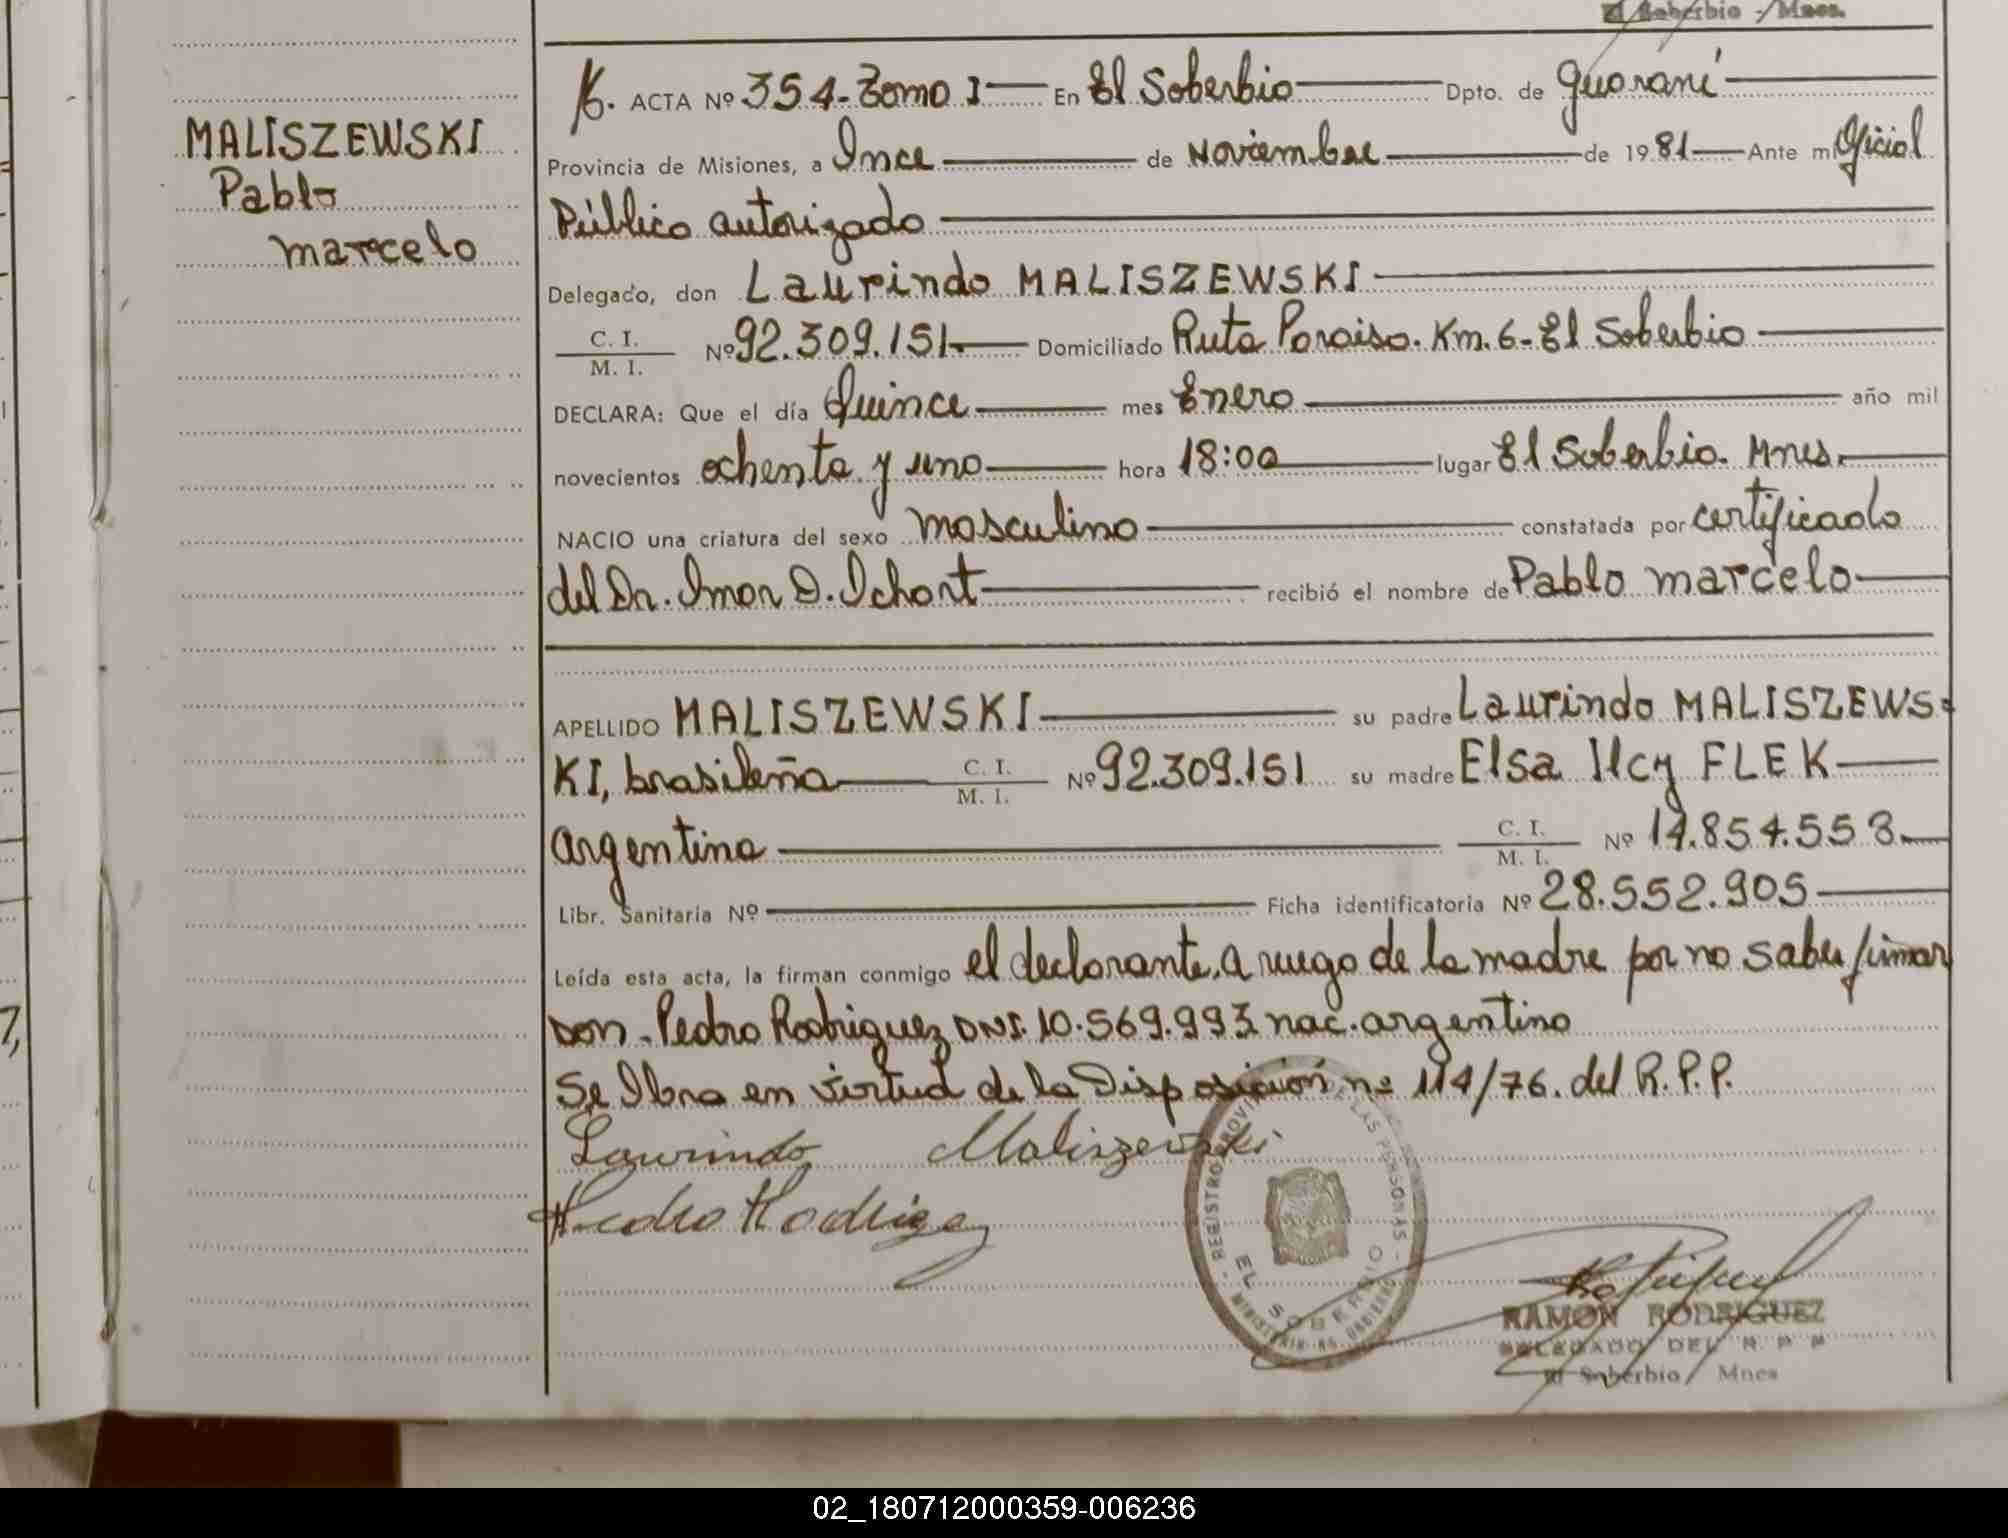 El Soberbio - Mnes.
MALISZEWSKI
Pablo
marcelo
ACTA Nº 354 - Tomo I En El Soberbio Dpto. de Guaraní
Provincia de Misiones, a Once de Noviembre de 1981 Ante mi Oficial
Público autorizado
Delegado, don Laurindo MALISZEWSKI
C. I.
M. I. Nº 92.309.151.- Domiciliado Ruta Paraiso. Km. 6 - El Soberbio
DECLARA: Que el día Quince mes Enero año mil
novecientos ochenta y uno hora 18:00 lugar El Soberbio. Mnes.
NACIO una criatura del sexo masculino constatada por certificado
del Dr. D. recibió el nombre de Pablo marcelo
APELLIDO MALISZEWSKI su padre Laurindo MALISZEWS-
KI, brasileña C. I.
M. I. Nº 92.309.151 su madre Elsa Ilcy FLEK
argentina C. I.
M. I. Nº 14.854.558.-
Libr. Sanitaria Nº Ficha identificatoria Nº 28.552.905
Leída esta acta, la firman conmigo el declarante, a ruego de la madre por no saber firmar
Don - Pedro Rodriguez DNI. 10.569.993 nac. argentino
Se labra en virtud de la Disposición nº 114/76. del R.P.P.
Laurindo Maliszewski
Pedro Rodriguez
REGISTRO PROVINCIAL DE LAS PERSONAS
EL SOBERBIO
MINISTERIO DE GOBIERNO
RAMON RODRIGUEZ
DELEGADO DEL R P P
El Soberbio Mnes
7,
02_180712000359-006236